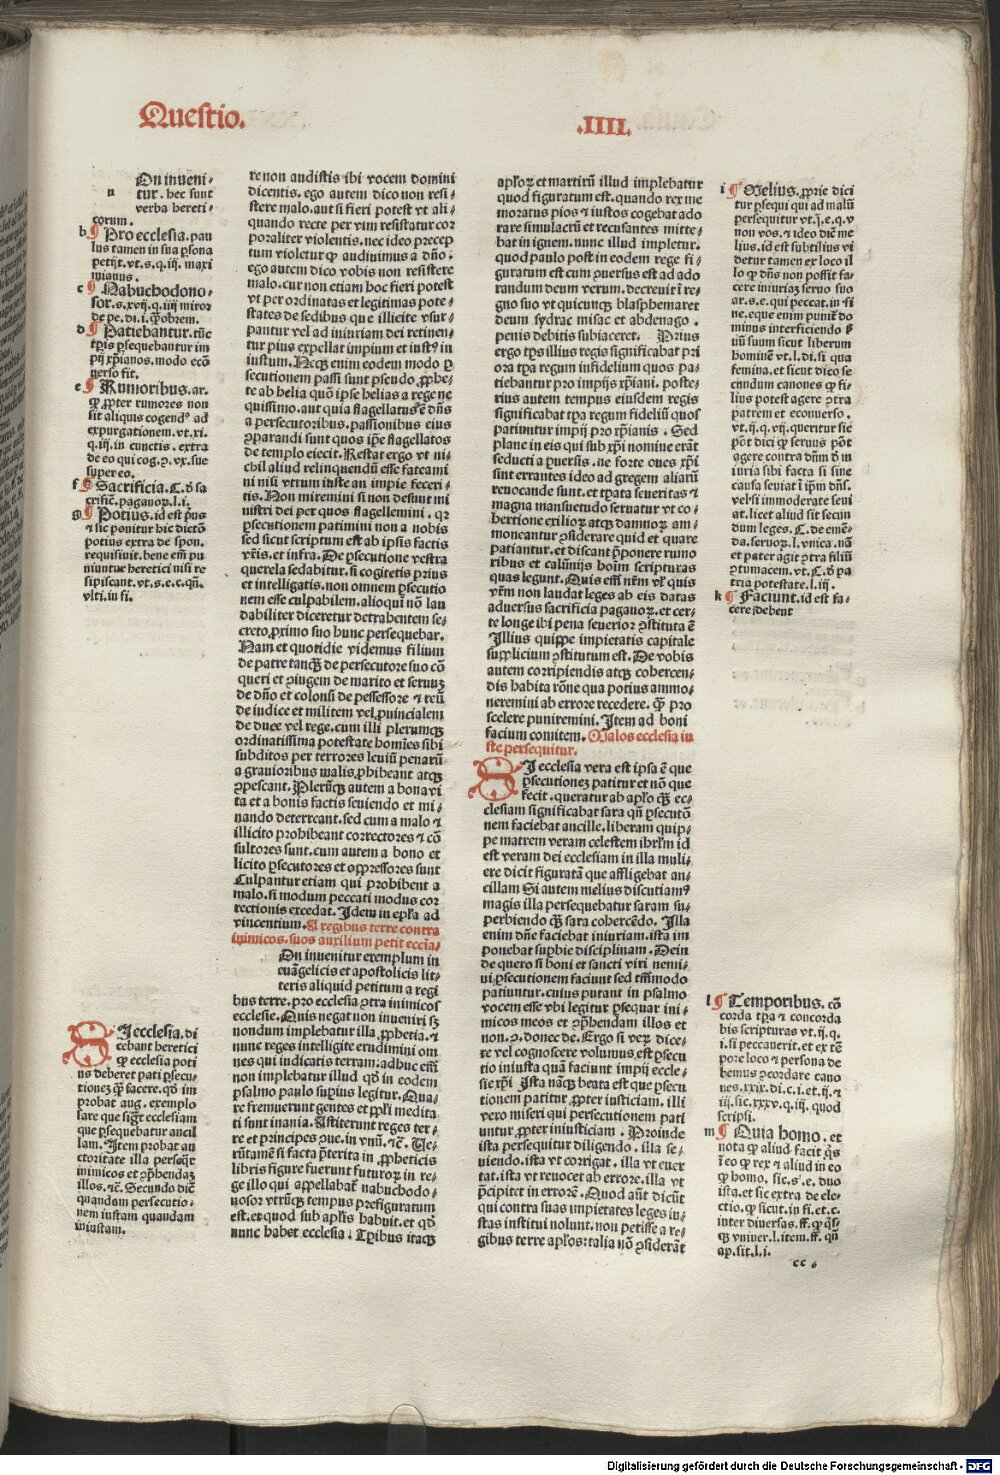 Questio.
.IIII.
On inueni⸗
n tur. hec sunt
verba hereti⸗
corum.
b ¶ Pro ecclesia. pau
lus tamen in sua ꝑsona
petijt. vt. s. q. iij. maxi
mianus.
c ¶ Nabuchodono⸗
sor. s. xvij. q. iiij miror
de pe. di. i. ꝙ obrem.
d ¶ Patiebantur. tūc
tꝑis ꝑsequebantur im
pij xp̄ianos. modo ecō
uerso fit.
e ¶ Rumioribus. ar.
ꝙ ꝓpter rumores non
sit aliquis cogendꝰ ad
expurgationem. vt. xi.
q. iij. in cunctis. extra
de eo qui cog. ꝯ. vx. sue
super eo.
f ¶ Sacrificia. C. ð sa
crific̄. paganoꝝ. l. i.
g ¶ Potius. id est pͥus
⁊ sic ponitur hic dictō
potius extra de spon.
requisiuit. bene em̄ pu
niuntur heretici nisi re
sipiscant. vt. s. e. c. qū.
vlti. in fi.
SJ ecclesia. di
cebant heretici
ꝙ ecclesia poti
us deberet pati ꝑsecu⸗
tionez ꝙ̄ facere. qð im
probat aug. exemplo
sare que sigͣt ecclesiam
que ꝑsequebatur ancil
lam. Item probat au
ctoritate illa perseqͣr
inimicos et ꝯp̄hendaꝫ
illos. ⁊c̄. Secundo dic̄
quandam persecutio⸗
nem iustam quandam
iniustam.
re non audistis ibi vocem domini
dicentis. ego autem dico non resi⸗
stere malo. aut si fieri potest vt ali⸗
quando recte per vim resistatur cor
poraliter violentis. nec ideo precep
tum violetur ꝙ audiuimus a dn̄o.
ego autem dico vobis non resistere
malo. cur non etiam hoc fieri potest
vt per ordinatas et legitimas pote⸗
states de sedibus que illicite vsur⸗
pantur vel ad iniuriam dei retinen⸗
tur pius expellat impium et iustꝰ in
iustum. Necꝫ enim eodem modo ꝑ
secutionem passi sunt pseudo ꝓphe⸗
te ab helia quō ipse helias a rege ne
quissimo. aut quia flagellatus ē dn̄s
a persecutoribus. passionibus eius
ꝯparandi sunt quos ip̄e flagellatos
de templo eiecit. Restat ergo vt ni⸗
chil aliud relinquendū esse fateami
ni nisi vtrum iuste an impie feceri⸗
tis. Non miremini si non desunt mi
nistri dei per quos flagellemini. qꝛ
ꝑsecutionem patimini non a nobis
sed sicut scriptum est ab ipsis factis
vr̄is. et infra. De ꝑsecutione vestra
querela sedabitur. si cogitetis prius
et intelligatis. non omnem ꝑsecutio
nem esse culpabilem. alioqui nō lau
dabiliter diceretur detrabentem se⸗
creto ꝓximo suo hunc persequebar.
Nam et quotidie videmus filium
de patre tanꝙ̄ de persecutore suo cō
queri et ꝯiugem de marito et seruuꝫ
de dn̄o et colonū de possessore ⁊ reū
de iudice et militem vel ꝓuincialem
de duce vel rege. cum illi plerumqꝫ
ordinatissima potestate homīes sibi
subditos per terrores leuiū penarū
a grauioribus malis ꝓhibeant atqꝫ
ꝯpescant. Plerūqꝫ autem a bona vi
ta et a bonis factis seuiendo et mi⸗
nando deterreant. sed cum a malo ⁊
illicito prohibeant correctores ⁊ cō
sultores sunt. cum autem a bono et
licito ꝑsecutores et oppressores sunt
Culpantur etiam qui prohibent a
malo. si modum peccati modus cor
rectionis excedat. Idem in epl̄a ad
vincentium. A regibus terre contra
inimicos. suos auxilium petit eccl̄ia.
On inuenitur exemplum in
euāgelicis et apostolicis lit⸗
teris aliquid petitum a regi
bus terre. pro ecclesia ꝯtra inimicos
ecclesie. Quis negat non inueniri sꝫ
nondum implebatur illa ꝓphetia. ⁊
nunc reges intelligite erudimini om
nes qui iudicatis terram: adhuc em̄
non implebatur illud qð in eodem
psalmo paulo suꝑius legitur. Qua⸗
re fremuerunt gentes et ppl̄i medita
ti sunt inania. Astiterunt reges ter⸗
re et principes ꝯue. in vnū. ⁊c̄. Ve⸗
rūtamē si facta p̄terita in ꝓpheticis
libris figure fuerunt futuroꝝ in re⸗
ge illo qui appellabat̄ nabuchodo⸗
nosor vtrūqꝫ tempus prefiguratum
est. et quod sub apl̄is habuit. et qð
nunc habet ecclesia. Tꝑibus itaqꝫ
apl̄oꝝ et martirū illud implebatur
quod figuratum est. quando rex me
moratus pios ⁊ iustos cogebat ado
rare simulacrū et recusantes mitte⸗
bat in ignem. nunc illud impletur.
quod paulo post in eodem rege fi⸗
guratum est cum ꝯuersus est ad ado
randum deum verum. decreuit ī re⸗
gno suo vt quicunqꝫ blasphemaret
deum sydrac misac et abdenago.
penis debitis subiaceret. Prius
ergo tꝑs illius regis significabat pri
ora tꝑa regum infidelium quos pa⸗
tiebantur pro impijs xp̄iani. poste⸗
rius autem tempus eiusdem regis
significabat tꝑa regum fideliū quos
patiuntur impij pro xp̄ianis. Sed
plane in eis qui sub xp̄i nomine erāt
seducti a ꝑuersis. ne forte oues xp̄i
sint errantes ideo ad gregem aliarū
reuocande sunt. et tꝑata seueritas ⁊
magna mansuetudo seruatur vt co⸗
hertione exilioꝝ atqꝫ damnoꝝ am⸗
moneantur ꝯsiderare quid et quare
patiantur. et discant p̄ponere rumo
ribus et calūnijs hoīm scripturas
quas legunt. Quis em̄ nr̄m vl̓ quis
vr̄m non laudat leges ab eis datas
aduersus sacrificia paganoꝝ. et cer⸗
te longe ibi pena seuerior ꝯstituta ē
Illius quippe impietatis capitale
supplicium ꝯstitutum est. De vobis
autem corripiendis atqꝫ cohercen⸗
dis habita rōne qua potius ammo⸗
neremini ab errore recedere. ꝙ̄ pro
scelere puniremini. Item ad boni
facium comitem. Malos ecclesia iu
ste persequitur.
SI ecclesia vera est ipsa ē que
ꝑsecutionez patitur et nō que
fecit. queratur ab apl̄o qꝫ ec⸗
clesiam significabat sara qn̄ ꝑsecutō
nem faciebat ancille. liberam quip⸗
pe matrem veram celestem ihrl̄m id
est veram dei ecclesiam in illa muli⸗
ere dicit figuratā que affligebat an⸗
cillam Si autem melius discutiamꝰ
magis illa persequebatur saram su⸗
perbiendo ꝙ̄ sara cohercēdo. Illa
enim dn̄e faciebat iniuriam. ista im
ponebat suꝑbie disciplinam. Dein
de quero si boni et sancti viri nemi⸗
ni ꝑsecutionem faciunt sed tm̄modo
patiuntur. cuius putant in psalmo
vocem esse vbi legitur ꝑsequar ini⸗
micos meos et ꝯp̄hendam illos et
non. ꝯ. donec de. Ergo si veꝝ dice⸗
re vel cognoscere volumus est ꝑsecu
tio iniusta quā faciunt impij eccle⸗
sie xp̄i Ista nāqꝫ beata est que ꝑsecu
tionem patitur ꝓpter iusticiam. illi
vero miseri qui persecutionem pati
untur ꝓpter iniusticiam. Proinde
ista persequitur diligendo. illa se⸗
uiendo. ista vt corrigat. illa vt euer
tat. ista vt reuocet ab errore. illa vt
p̄cipitet in errorē. Quod aūt dicūt
qui contra suas impietates leges iu⸗
stas institui nolunt. non petisse a re⸗
gibus terre apl̄os: talia nō ꝯsiderāt
i ¶ Melius. ꝓprie dici
tur ꝑsequi qui ad malū
persequitur vt. j. e. q. v
non vos. ⁊ ideo dic̄ me
lius. id est subtilius vi
detur tamen ex loco il
lo ꝙ dn̄s non possit fa⸗
cere iniuriaꝫ seruo suo
ar. s. e. qui peccat. in fi
ne. eque enim punit̄ do
minus interficiendo ß
uū suum sicut liberum
hominē vt. l. di. si qua
femina. et sicut dico se
cundum canones ꝙ fi⸗
lius potest agere ꝯtra
patrem et econuerso.
vt. ij. q. vij. queritur sic
pōt dici ꝙ seruus pōt
agere contra dn̄m ð in
iuria sibi facta si sine
causa seuiat ī ip̄m dn̄s.
vel si immoderate seui
at. licet aliud sit secun
dum leges. C. de emē⸗
da. seruoꝝ. l. vnica. nā
et pater agit ꝯtra filiū
ꝯtumacem. vt. C. ð pa
tria potestate. l. iij.
k ¶ Faciunt. id est fa⸗
cere debent
l ¶ Temporibus. cō
corda tꝑa ⁊ concorda
bis scripturas vt. ij. q.
i. si peccauerit. et ex tē
pore loco ⁊ persona de
bemus ꝯcordare cano
nes. xxix. di. c. i. et. ij. ⁊
iij. sic. xxxv. q. iij. quod
scripsi.
m ¶ Quia homo. et
nota ꝙ aliud facit qͥs
ī eo ꝙ rex ⁊ aliud in eo
ꝙ homo. sic. s. e. duo
ista. et sic extra de ele⸗
ctio. ꝙ sicut. in fi. et. c.
inter diuersas. ff. ꝙ qͥs⸗
qꝫ vniuer. l. item. ff. qū
ap. sit. l. i.
cc
Digitalisierung gefördert durch die Deutsche Forschungsgemeinschaft - DFG